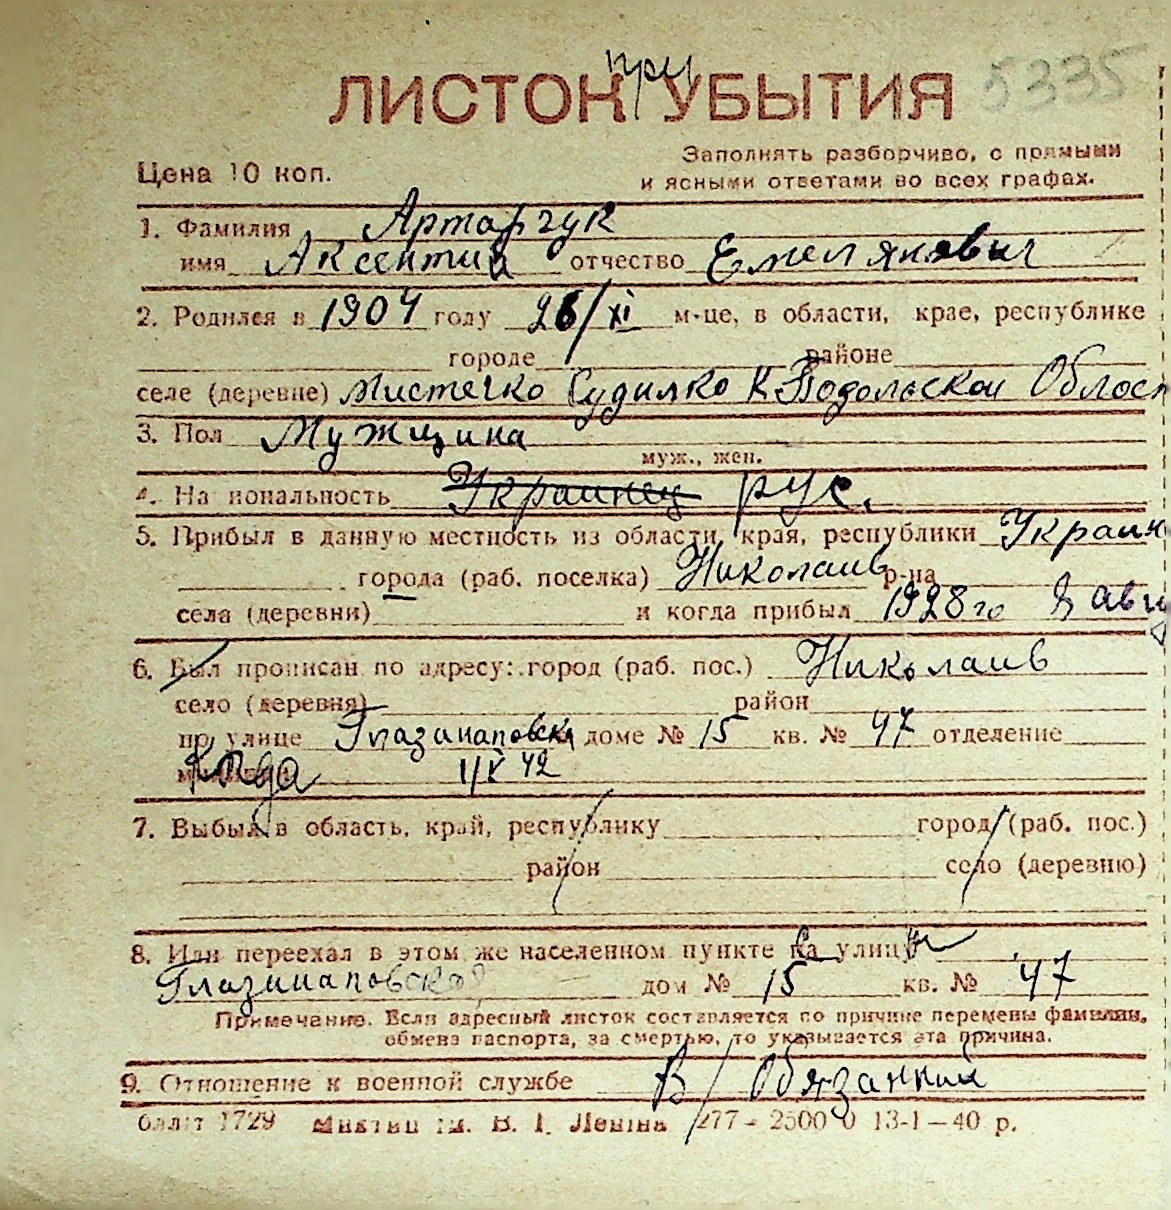 при
ЛИСТОК УБЫТИЯ 5335
Цена 10 коп.
Заполнять разборчиво, с прямыми
и ясными ответами во всех графах.
1. Фамилия Артарчук
имя Аксентий отчество Емелянович
2. Родился в 1904 году 26/XI м-це, в области, крае, республике
городе районе
селе (деревне) Мистечко Судилко К.Подольской Област
3. Пол Мужщина
муж., жен.
4. На иональность Украинец рус.
5. Прибыл в данную местность из области, края, республики Украин
города (раб. поселка) Николаив р-на
села (деревни) и когда прибыл 1928 го 8 авгу
6. Был прописан по адресу: город (раб. пос.) Николаив
село (деревня) район
по улице Глазинаповск доме № 15 кв. № 47 отделение
Когда 1/V 42
7. Выбыл в область, край, республику город (раб. пос.)
район село (деревню)
8. Или переехал в этом же населенном пункте на улицу
Глазинаповская дом № 15 кв. № 47
Примечание. Если адресный листок составляется по причине перемены фамилии,
обмена паспорта, за смертью, то указывается эта причина.
9. Отношение к военной службе В/Обязанный
бліт 1729 ім. В. І. Леніна 277 - 25000 13-I-40 р.